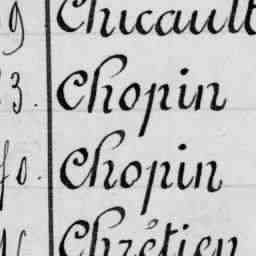 9 Chicault
3. Chopin
40. Chopin
Chrétien